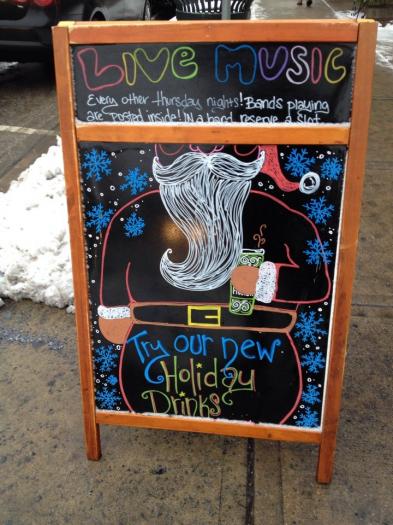 Live Music
Every other thursday nights! Bands playing
are posted inside! IN a band, reserve a slot
Try our new
Holiday
Drinks